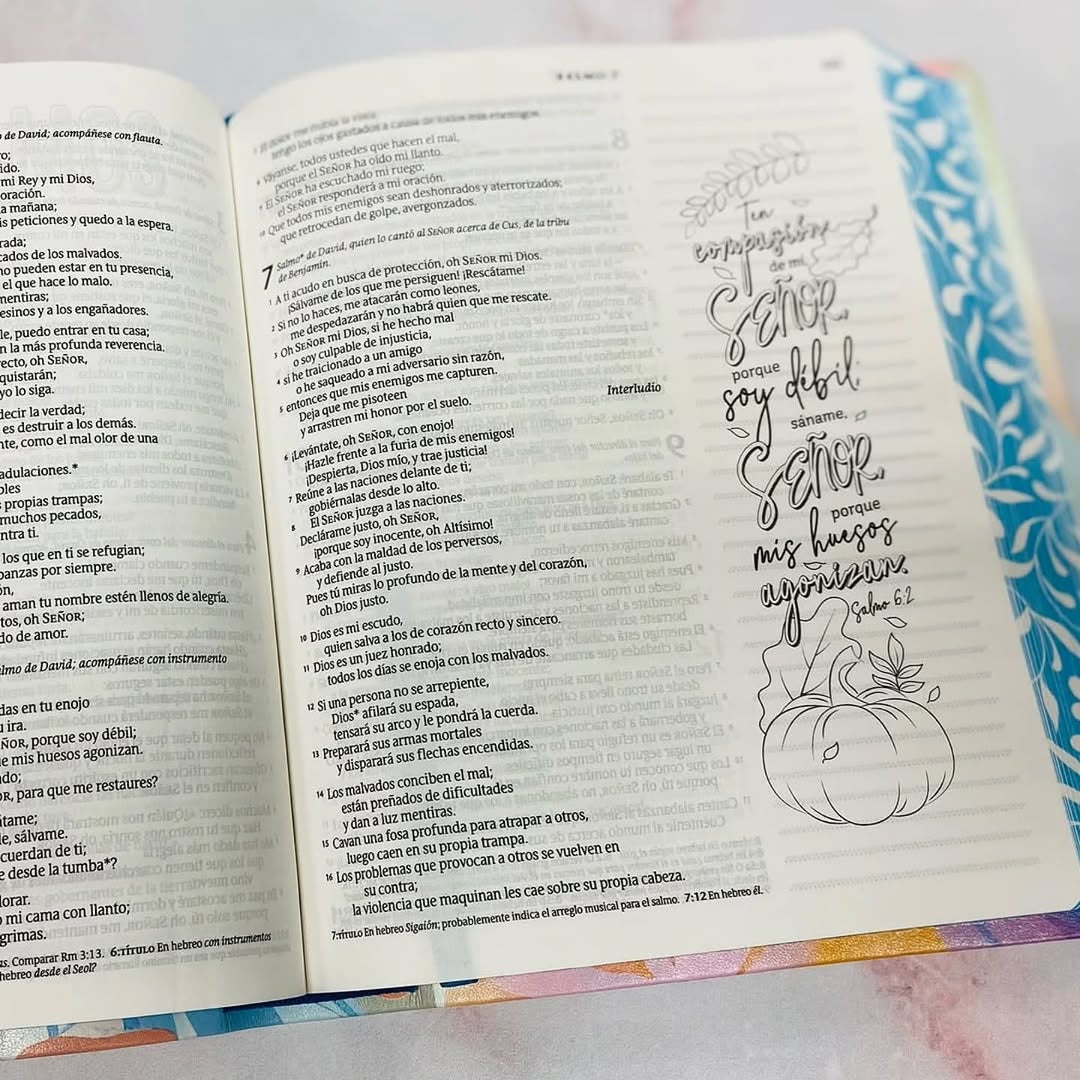 de David; acompáñese con flauta.
mi Rey y mi Dios,
oración.
mañana;
peticiones y quedo a la espera.
cados de los malvados.
no pueden estar en tu presencia,
el que hace lo malo.
mentiras;
esinos y a los engañadores.
puedo entrar en tu casa;
la más profunda reverencia.
recto, oh SEÑOR,
quistarán;
yo lo siga.
decir la verdad;
es destruir a los demás.
como el mal olor de una
adulaciones.*
propias trampas;
muchos pecados,
ntra ti.
los que en ti se refugian;
banzas por siempre.
aman tu nombre estén llenos de alegría.
oh SEÑOR;
do de amor.
lmo de David; acompáñese con instrumento
das en tu enojo
u ira.
ÑOR, porque soy débil;
mis huesos agonizan.
para que me restaures?
átame;
sálvame.
cuerdan de ti;
desde la tumba*?
lorar.
mi cama con llanto;
grimas.
Comparar Rm 3:13. 6:TÍTULO En hebreo con instrumentos
hebreo desde el Seol?
SALMO 7
7 El dolor me nubla la vista;
tengo los ojos gastados a causa de todos mis enemigos.
8 Váyanse, todos ustedes que hacen el mal,
porque el SEÑOR ha oído mi llanto.
9 El SEÑOR ha escuchado mi ruego;
el SEÑOR responderá a mi oración.
10 Que todos mis enemigos sean deshonrados y aterrorizados;
que retrocedan de golpe, avergonzados.
7 Salmo* de David, quien lo cantó al SEÑOR acerca de Cus, de la tribu
de Benjamín.
1 A ti acudo en busca de protección, oh SEÑOR mi Dios.
¡Sálvame de los que me persiguen! ¡Rescátame!
2 Si no lo haces, me atacarán como leones,
me despedazarán y no habrá quien que me rescate.
3 Oh SEÑOR mi Dios, si he hecho mal
o soy culpable de injusticia,
4 si he traicionado a un amigo
o he saqueado a mi adversario sin razón,
5 entonces que mis enemigos me capturen.
Deja que me pisoteen
y arrastren mi honor por el suelo. Interludio
6 ¡Levántate, oh SEÑOR, con enojo!
¡Hazle frente a la furia de mis enemigos!
¡Despierta, Dios mío, y trae justicia!
7 Reúne a las naciones delante de ti;
gobiérnalas desde lo alto.
8 El SEÑOR juzga a las naciones.
Declárame justo, oh SEÑOR,
¡porque soy inocente, oh Altísimo!
9 Acaba con la maldad de los perversos,
y defiende al justo.
Pues tú miras lo profundo de la mente y del corazón,
oh Dios justo.
10 Dios es mi escudo,
quien salva a los de corazón recto y sincero.
11 Dios es un juez honrado;
todos los días se enoja con los malvados.
12 Si una persona no se arrepiente,
Dios* afilará su espada,
tensará su arco y le pondrá la cuerda.
13 Preparará sus armas mortales
y disparará sus flechas encendidas.
14 Los malvados conciben el mal;
están preñados de dificultades
y dan a luz mentiras.
15 Cavan una fosa profunda para atrapar a otros,
luego caen en su propia trampa.
16 Los problemas que provocan a otros se vuelven en
su contra;
la violencia que maquinan les cae sobre su propia cabeza.
7:TÍTULO En hebreo Sigaión; probablemente indica el arreglo musical para el salmo. 7:12 En hebreo él.
Ten
compasión
de mí,
SEÑOR,
porque
soy débil;
sáname,
SEÑOR,
porque
mis huesos
agonizan.
Salmo 6:2